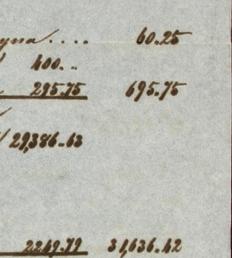 60.25
400..
295.75 695.75
29,386.63
2249.79 31,636.42